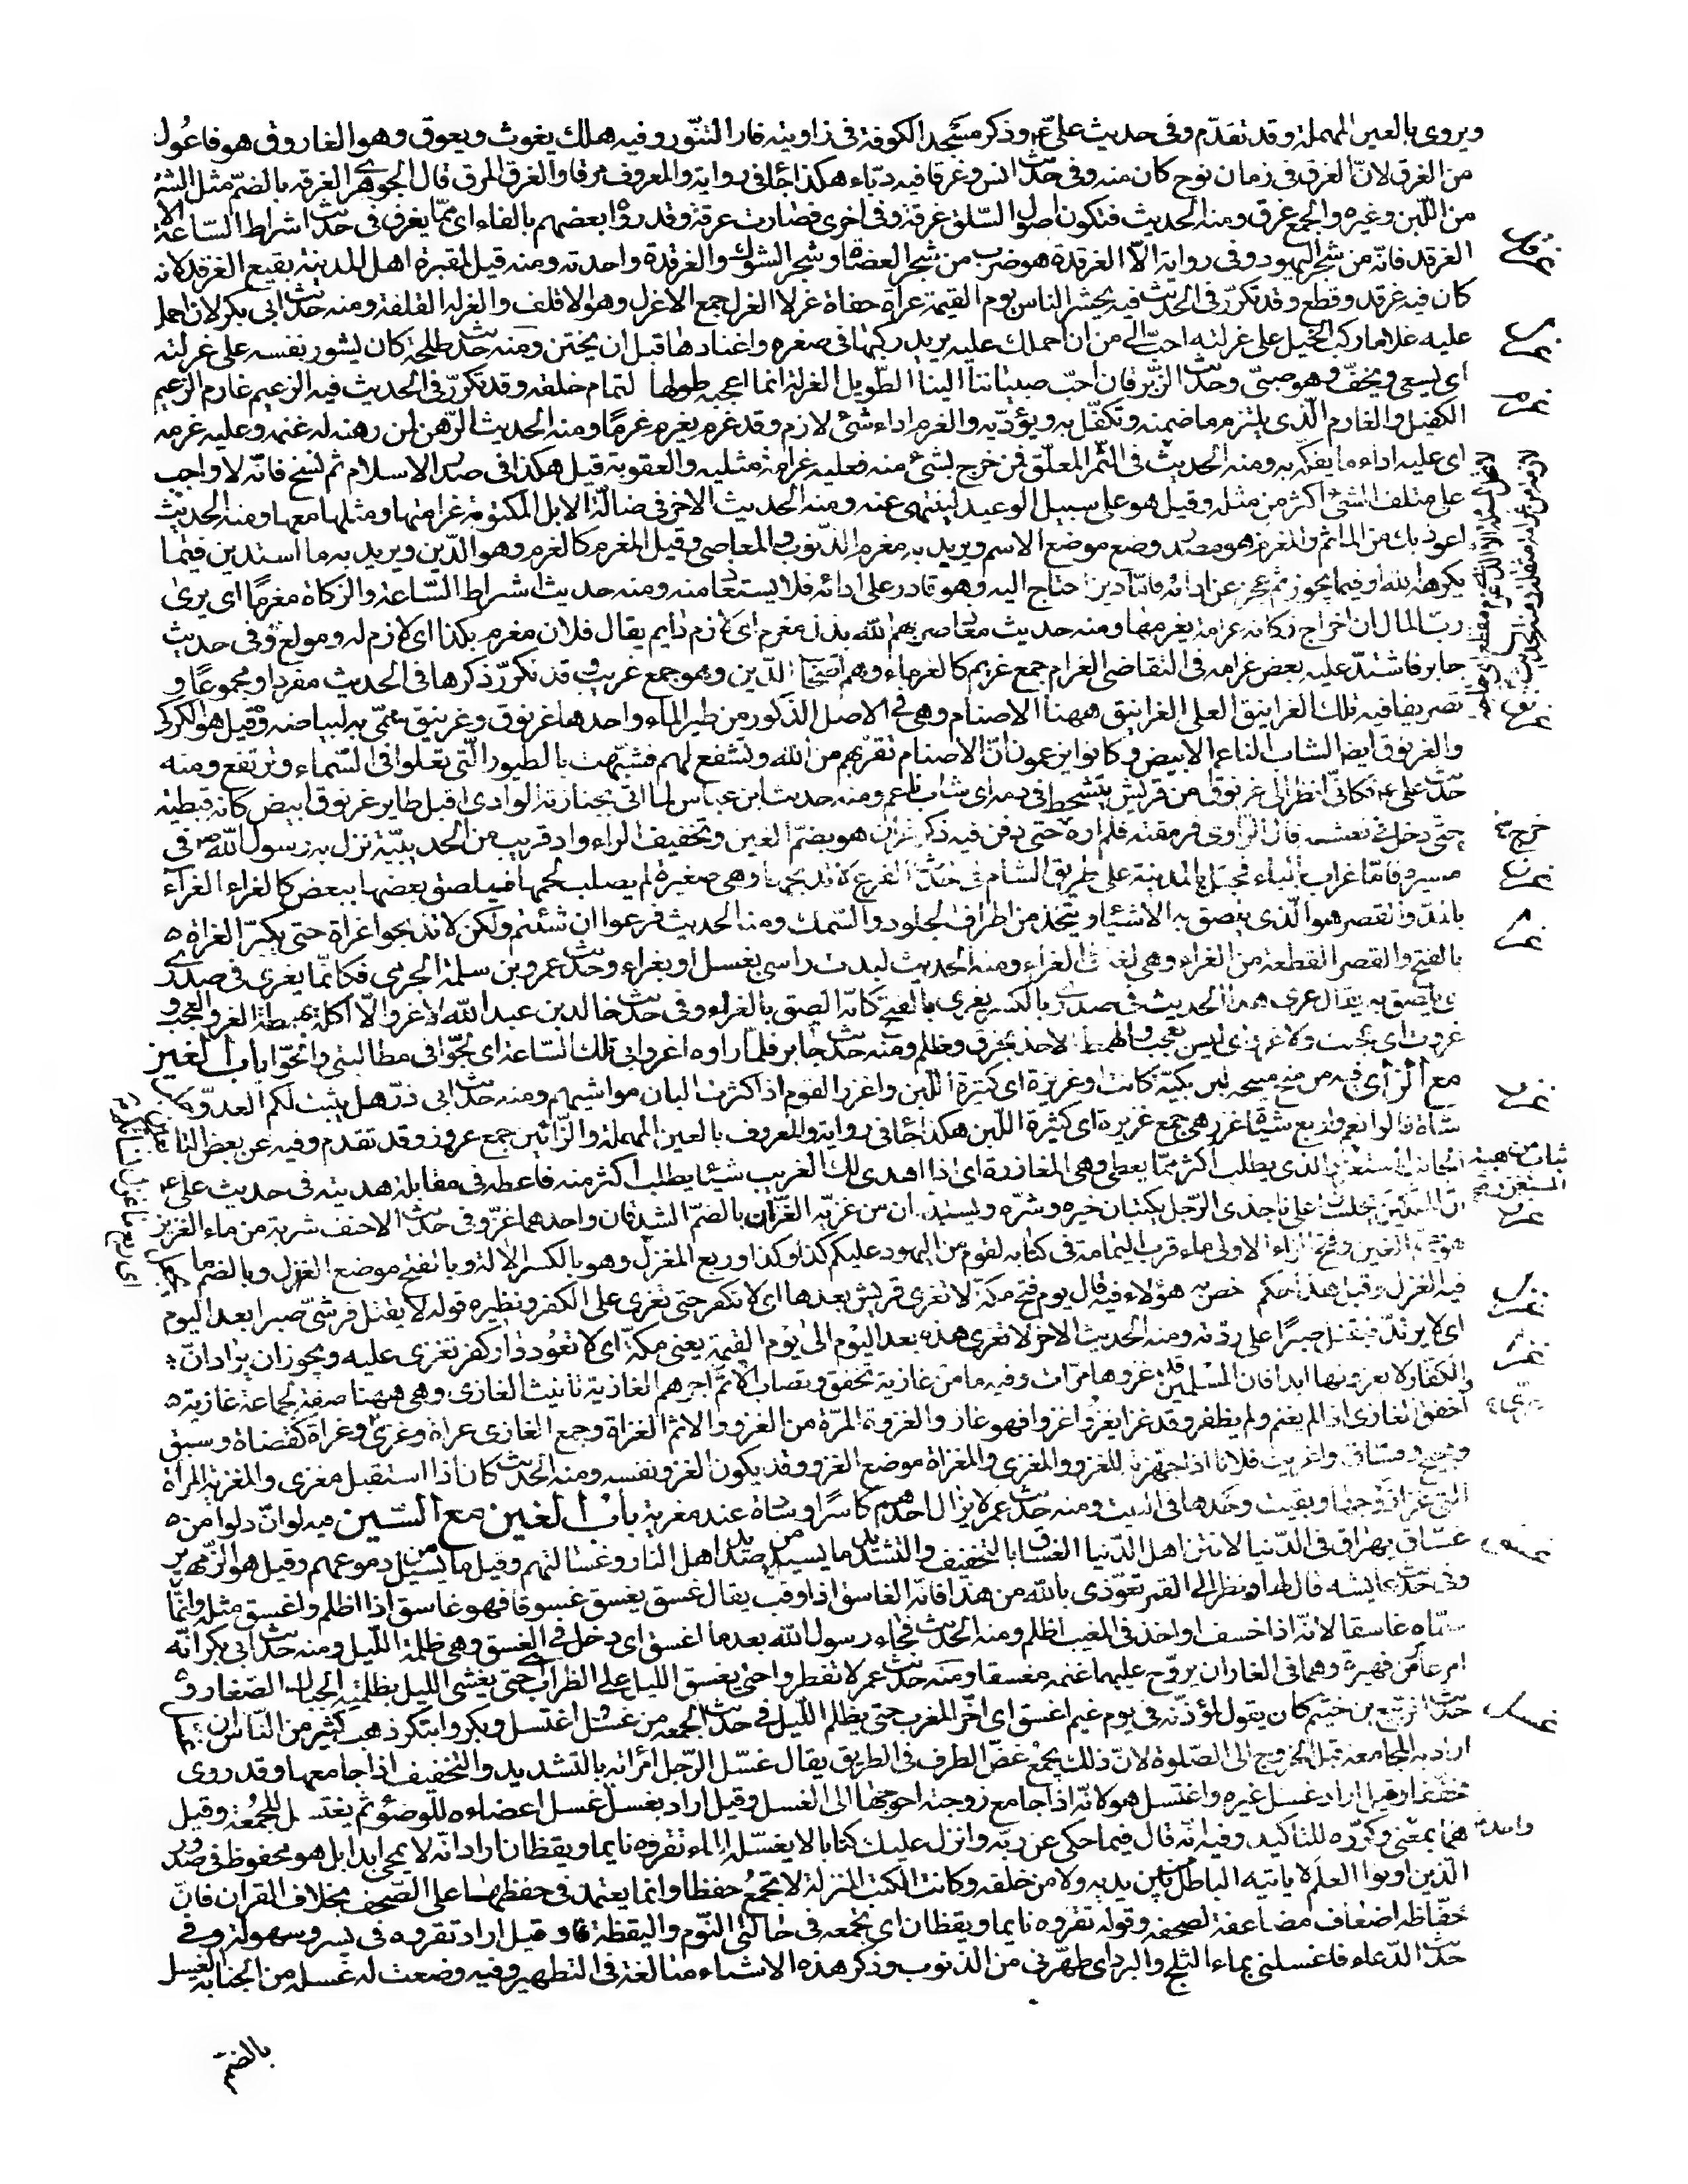 ويروى بالعين المهملة وقد تقدّم وفى حديث علىّ ع وذكر مسجد الكوفة فى زاويته فار التنّور وفيه هلك يغوث ويعوق وهو الغاروق هو فاعُول
من الغرق لانّ الغرق فى زمان نوح كان منه وفى حدّيث انس وغرقا فيه دبّاء هكذا جاٴ فى رواية والمعروف مرقا والغرق المرق قال الجوهرى الغرقه بالضمّ مثل الشربة
من اللّبن وغيره والجمع غرق ومنه الحديث فتكون اصول السّلق غرقة وفى اخرى فصارت عرقة وقد رواه بعضهم بالفاء اى ممّا يغرف فى حدّيث اشراط السّاعة الا
الغرقد فانّه من شجر اليهود وفى رواية الّا الغرقدة هو ضرب من شجر العضاة وشجر الشوك والغرقدة واحدته ومنه قيل لمقبرة اهل المدينة بقيع الغرقد لانه
كان فيه غرقد وقطع وقد تكرّر فى الحديث فيه يحشر الناس يوم القيمة عراة حفاة غرلا الغرل جمع الاغرل وهو الاقلف والغرله القلفة ومنه حدّيث ابى بكر لان احمل
عليه غلاما ركب الخيل على غرلته احبّ الى من ان احملك عليه يريد ركبها فى صغره واعتادها قبل ان يختن ومنه حدّيث طلحة كان يشور نفسه على غرلته
اى يسعى ويخفّ وهو صبىّ وحدّيث الزّبرقان احبّ صبياننا الينا الطّويل الغرلة انما اعجبه طولها لتمام خلقه وقد تكرّر فى الحديث فيه الزعيم غارم الزعيم
الكفيل والغارم الّذى يلتزم ما ضمنه وتكفّل به ويؤدّيه والغرم اداء شئ لازم وقد غرم يغرم غرمًا ومنه الحديث الرّهن لمن رهنه له غنمه وعليه غرمه
اى عليه اداء ما يفكّه به ومنه الحديث فى الثمر المعلّق فمن خرج بشئ منه فعليه غرامة مثليه والعقوبة قيل هكذا فى صدر الاسلام ثم نسخ فانّه لا واجب
على متلف الشئ اكثر من مثله وقيل هو على سبيل الوعيد لينتهى عنه ومنه الحديث الاخر فى ضالّة الابل المكتومة غرامتها ومثلها معها ومنه الحديث
اعوذ بك من المأثم والمغرم هو مصدر وضع موضع الاسم ويريد به مغرم الذّنوب والمعاصى وقيل المغرم كالغرم وهو الدّين ويريد به ما استدين فيما
يكرهه الله او فيما يجوز ثم عجز عن ادائه فامّا دين احتاج اليه وهو قادر على ادائه فلا يستعاذ منه ومنه حديث اشراط السّاعة والزكاة مغرمًا اى يرى
ربّ المال ان اخراج زكاته غرامة يغرمها ومنه حديث معاذ ضربهم الله بذلّ مغرم اى لازم دايم يقال فلان مغرم بكذا اى لازم له ومولع به وفى حديث
جابر فاشتدّ عليه بعض غرامه فى التقاضى الغرام جمع غريم كالغرماء وهم اصحاب الدّين وهو جمع غريب وقد تكرّر ذكرها فى الحديث مفردا ومجموعًا و
تصريفا فيه تلك الغرانيق العلى الغرانيق ههنا الاصنام وهى فى الاصل الذكور من طير الماء واحدها غرنوق وغرنيق سمّى به لبياضه وقيل هو الكركى
والغرنوق ايضا الشاب الناعم الابيض وكانوا يزعمون انّ الاصنام تقرّبهم من الله وتشفع لهم فشبّهت بالطيور الّتى تعلوا فى السّماء وترتفع ومنه
حدّيث على ع فكانّى انظر الى غرنوق من قريش يتشحط فى دمه اى شاب ناعم ومنه حديث ابن عباس لما اتى بجنازته الوادى اقبل طاير غرنوق ابيض كانه قبطية
حتّى دخل فى نعشه قال الرّاوى فرمقته فلم اره حتى دفن فيه ذكر غران هو بضمّ الغين وتخفيف الراء واد قريب من الحديبيّة نزل به رسول الله ص فى
مسيره فامّا غراب بالباء فجبل بالمدينة على طريق الشام فى حدّيث الفرع لا تذبحها وهى صغيرة لم يصلب لحمها فيلصق بعضها ببعض كالغراء الغراء
بالمدّ والقصر هو الّذى يلصق به الاشياء ويتّخذ من اطراف الجلود والسّمك ومنه الحديث فرعوا ان شئتم ولكن لا تذبحوا غراة حتى يكبّر الغراة
بالفتح والقصر القطعة من الغراء وهى لغة فى الغراء ومنه الحديث لبدت راسى بغسل او بغراء وحدّيث عمرو بن سلمة الجرمى فكانّما يغرى فى صدرى
اى يلصق به يقال غرى هذا الحديث فى صدرى بالكسر يغرى بالفتح كانّه الصق بالغراء وفى حدّيث خالد بن عبد الله لا غرو الّا اكلة بهمطة الغرو العجب و
غروت اى عجبت ولا غرو اى ليس بعجب والهمط الاخذ بخرق وظلم ومنه حدّيث جابر فلمّا راوه اغروا بى تلك السّاعة اى لجّوا فى مطالبتى والحّوا باب الغين
مع الزاى فيه من منح منيحه لبن بكيّة كانت او غزيرة اى كثيرة اللّبن واغزر القوم اذا كثرت البان مواشيهم ومنه حدّيث ابى ذرّ هل يثبت لكم العدوّ حلب
شاة قالوا نعم واربع شياه غزر هى جمع غزيرة اى كثيرة اللّبن هكذا جاٴ فى رواية والمعروف بالعين المهملة والزّائين جمع عزوز وقد تقدم وفيه عن بعض التابعين
الجانب المستغزر الذى يطلب اكثر ممّا يعطى وهى المغازرة اى اذا اهدى لك الغريب شيئا يطلب اكثر منه فاعطه فى مقابلة هديته فى حديث على ع
انّ الملكين يجلسان على ناجذى الرّجل يكتبان خيره وشرّه ويستمدّان من غزّيه الغزّان بالضمّ الشدقان واحدهما غزّ وفى حدّيث الاحنف شربة من ماء الغزيز
هو بضمّ الغين وفتح الزاء الاولى ماء قرب اليمامة فى كتابه لقوم من اليهود عليكم كذا وكذا وربع المغزل وهو بالكسر الالة وبالفتح موضع الغزل وبالضم ما
فيه الغزل وقيل هذا حكم خصّ به هؤلاء فيه قال يوم فتح مكّة لا تغزى قريش بعدها اى لا تكفر حتى تغزى على الكفر ونظيره قوله لا يقتل قرشىّ صبرا بعد اليوم
اى لا يرتدّ فيقتل صبرًا على ردّته ومنه الحديث الاخر لا تغزى هذه بعد اليوم الى يوم القيمة يعنى مكّة اى لا تعُود دار كفر تغزى عليه ويجوز ان يراد انّ
الكفار لا يغزونها ابدا فان المسلمين قد غزوها مرّات وفيه ما من غازية تخفق وتصاب الا تمّ اجرهم الغازية تانيث الغازى وهى ههنا صفة لجماعة غازية
اخفق الغازى اذا لم يغنم ولم يظفر وقد غزا يغزُو غزوا فهو غاز والغزوة المرّة من الغزو والاثم الغزاة وجمع الغازى غزاة وغزىّ وغزاة كقضاة وسبق
وحجيج وفسّاق واغزيت فلانا اذا جهّزته للغزو والمغزى والمغزاة موضع الغزو وقد يكون الغزو نفسه ومنه الحديث كان اذا استقبل مغزى والمغزية المراة
التى غزا زوجها وبقيت وحدها فى البيت ومنه حدّيث عمر لا يزال احدهم كاسرًا وساده عند مغزية باب الغين مع السّين فيه لو انّ دلوا من
غسّاق يهراق فى الدّنيا لانتن اهل الدّنيا الغساق بالتخفيف والتشديد ما يسيل من صديد اهل النار وغسالتهم وقيل ما يسيل من دموعهم وقيل هو الزمهرير
وفى حدّيث عايشه قال لها ونظر الى القمر تعوّذى بالله من هذا فانّه الغاسق اذا وقب يقال غسق يغسق غسوقا فهو غاسق اذا اظلم واغسق مثله وانّما
سمّاه غاسقا لانّه اذا خسف او اخذ فى المغيب اظلم ومنه الحديث فجاء رسول الله بعد ما اغسق اى دخل فى الغسق وهى ظلمة اللّيل ومنه حدّيث ابى بكر انّه
امر عامر بن فهيرة وهما فى الغار ان يروّح عليهما غنمه مغسقا ومنه حدّيث عمر لا تفطروا حتى يغسق الليل على الظراب حتى يغشى الليل بظلمته الجبال الصّغار و
حدّيث الرّبيع بن خثيم كان يقول لمؤذنّه فى يوم غيم اغسق اى اخّر المغرب حتى يظلم اللّيل فى حدّيث الجمعه من غسّل اغتسل وبكر وابتكر ذهب كثير من النّاس ان
اراد به المجامعة قبل الخروج الى الصّلوة لانّ ذلك يجمع غضّ الطرف فى الطريق يقال غسّل الرّجل امراته بالتشديد والتخفيف اذا جامعها وقد روى
مخفّفا وقيل اراد غسل غيره واغتسل هو لانّه اذا جامع زوجته احوجها الى الغسل وقيل اراد بغسل غسل اعضاءه للوضوٴ ثم يغتسل للجمُعة وقيل
هما بمعنى وكرّره للتاكيد وفيه انّه قال فيما حكى عن ربّه وانزل عليك كتابا لا يغسّله الماء تقروه نايما ويقظان اراد انّه لا يمحى ابدا بل هو محفوظ فى صُدُور
الّذين اوتوا العلم لا ياتيه الباطل من بين يديه ولا من خلفه وكانت الكتب المنزلة لا تجمعُ حفظا وانما يعتمد فى حفظها على الصّحف بخلاف القرآن فانّ
حفّاظه اضعاف مضاعفة لصحفه وقوله تقروه نايما ويقظان اى تجمعه فى حالتى النّوم واليقظة وقيل اراد تقروه فى يسر وسهولة وفى
حدّيث الدّعاء فاغسلنى بماء الثلج والبرد اى طهّرنى من الذنوب وذكر هذه الاشياء مبالغة فى التطهير وفيه وضعت له غسله من الجنابة الغسل
بالضّم
غرقد
غرل
غرم
غرنق
غرن
غرا
غزر
غزز
غزل
غزا
غسق
غسل